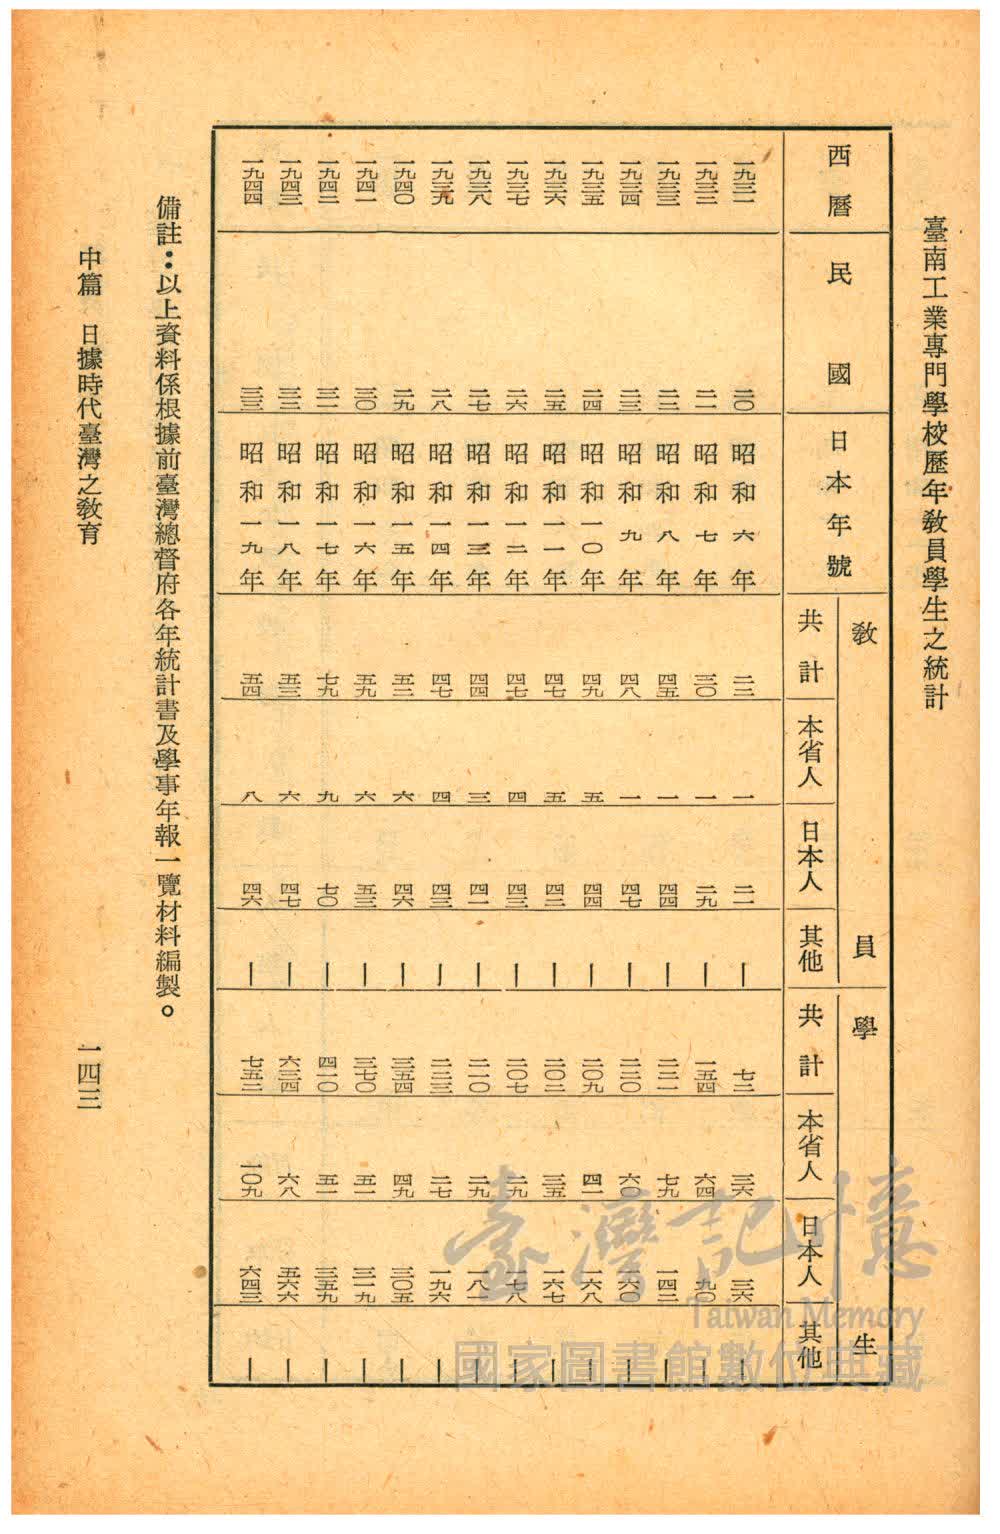 臺南工業專門學校歷年敎員學生之統計
敎員 學生
西曆 民國 日本年號 共計 本省人 日本人 其他 共計 本省人 日本人 其他
一九三一 二〇 昭和六年 二二 一 二一 — 七二 三六 三六 —
一九三二 二一 昭和七年 三〇 一 二九 — 一五四 六四 九〇 —
一九三三 二二 昭和八年 四五 一 四四 — 二二一 七九 一四二 —
一九三四 二三 昭和九年 四八 一 四七 — 二二〇 六〇 一六〇 —
一九三五 二四 昭和一〇年 四九 五 四四 — 二〇九 四一 一六八 —
一九三六 二五 昭和一一年 四七 五 四二 — 二〇二 三五 一六七 —
一九三七 二六 昭和一二年 四七 四 四三 — 二〇七 二九 一七八 —
一九三八 二七 昭和一三年 四四 三 四一 — 二一〇 二九 一八一 —
一九三九 二八 昭和一四年 四七 四 四三 — 二二三 二七 一九六 —
一九四〇 二九 昭和一五年 五二 六 四六 — 三五四 四九 三〇五 —
一九四一 三〇 昭和一六年 五九 六 五三 — 三七〇 五一 三一九 —
一九四二 三一 昭和一七年 七九 九 七〇 — 四一〇 五一 三五九 —
一九四三 三二 昭和一八年 五三 六 四七 — 六三四 六八 五六六 —
一九四四 三三 昭和一九年 五四 八 四六 — 七五二 一〇九 六四三 —
備註：以上資料係根據前臺灣總督府各年統計書及學事年報一覽材料編製。
中篇 日據時代臺灣之敎育
一四三
臺灣記憶
Taiwan Memory
國家圖書館數位典藏